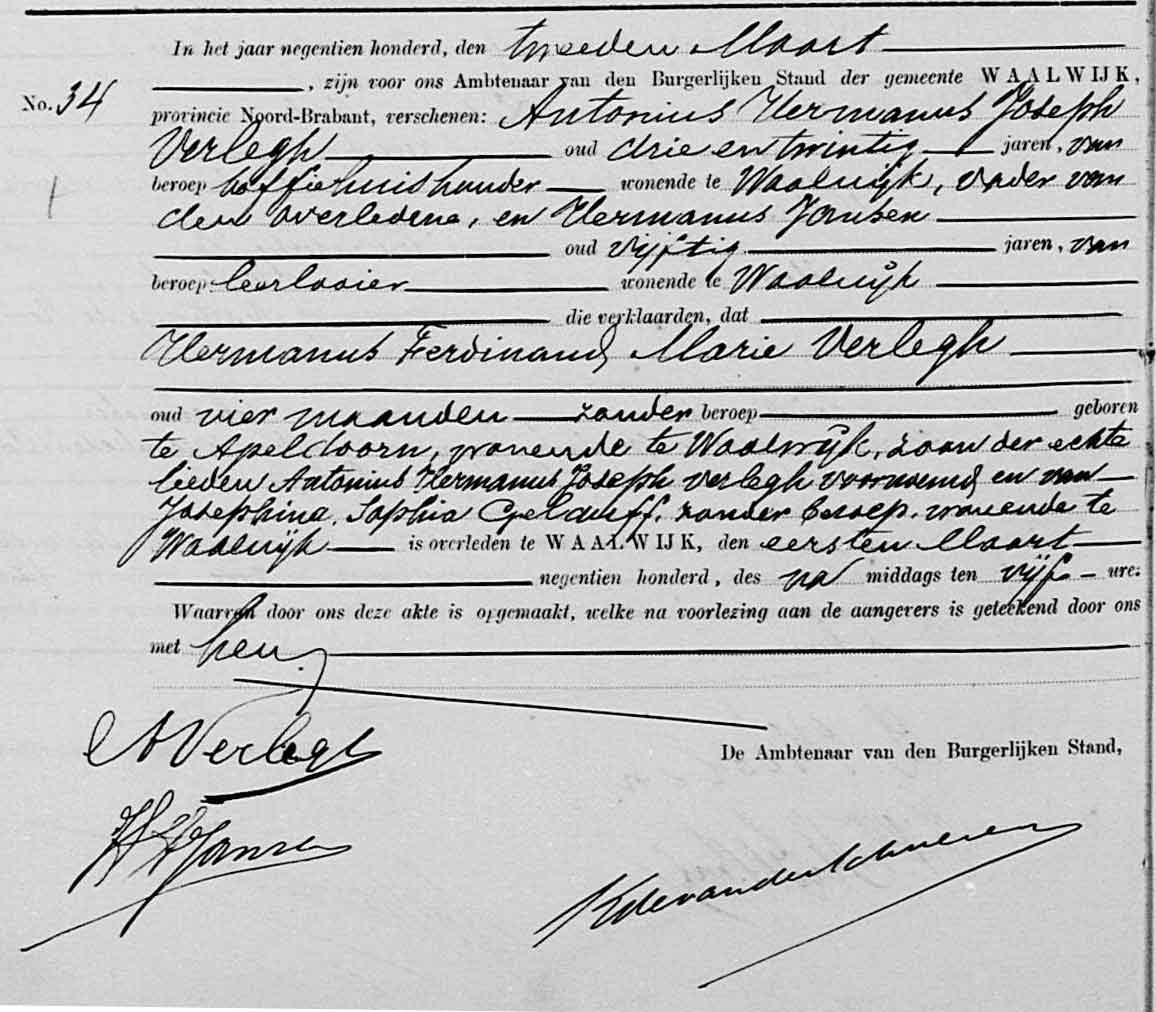 In het jaar negentien honderd, den tweeden Maart
, zijn voor ons Ambtenaar van den Burgerlijken Stand der gemeente WAALWIJK,
No. 34
provincie Noord-Brabant, verschenen: Antonius Hermanus Joseph
Verlegh oud drie en twintig jaren, van
beroep koffiehuishouder wonende te Waalwijk, vader van
den overledene, en Hermanus Jansen
oud vijftig jaren, van
beroep leerlooier wonende te Waalwijk
die verklaarden, dat
Hermanus Ferdinand Marie Verlegh
oud vier maanden zonder beroep geboren
te Apeldoorn, wonende te Waalwijk, zoon der echte
lieden Antonius Hermanus Joseph Verlegh voornoemd en van
Josephina Sophia zonder beroep, wonende te
Waalwijk is overleden te WAALWIJK, den eersten Maart
negentien honderd, des na middags ten vijf ure.
Waarvan door ons deze akte is opgemaakt, welke na voorlezing aan de aangevers is geteekend door ons
met hen.
A Verlegh
De Ambtenaar van den Burgerlijken Stand,
Jansen